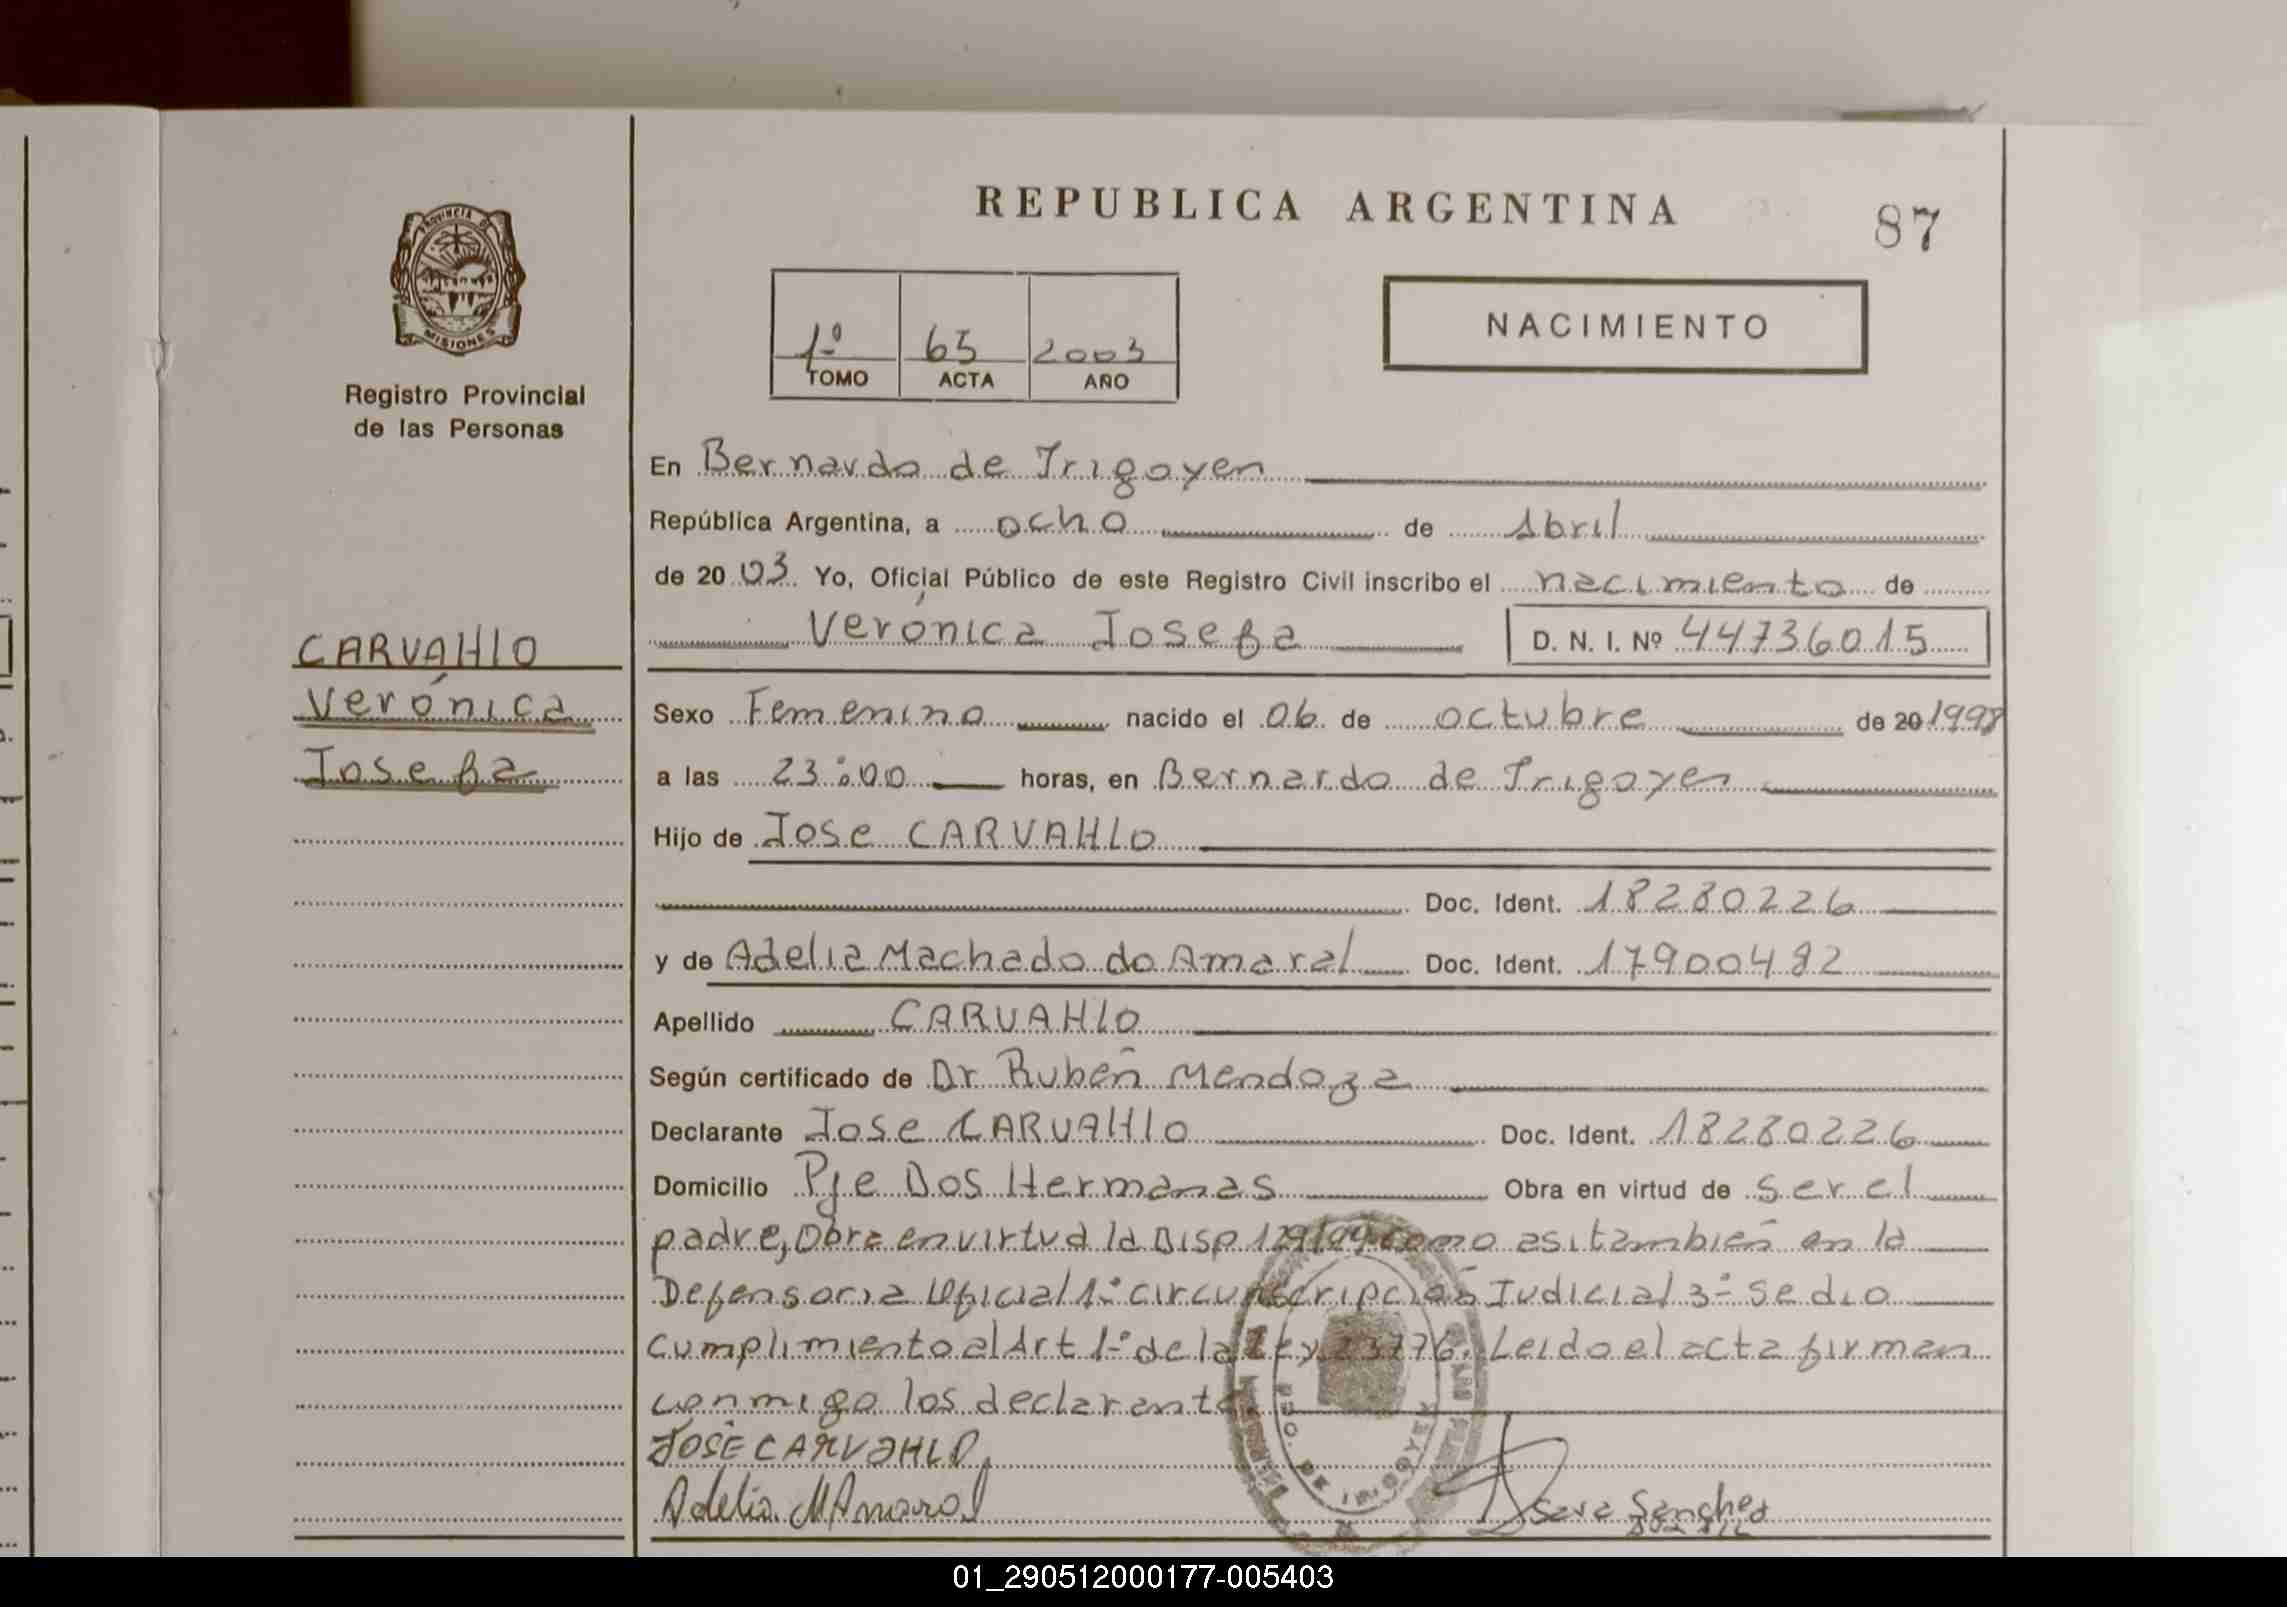 REPUBLICA ARGENTINA
87
PROVINCIA DE
MISIONES
Registro Provincial
de las Personas
1º 65 2003
TOMO ACTA AÑO
NACIMIENTO
CARVAHLO
Verónica
Josefa
En Bernardo de Irigoyen
República Argentina, a ocho de Abril
de 20 03 Yo, Oficial Público de este Registro Civil inscribo el nacimiento de
Verónica Josefa D. N. I. Nº 44736015
Sexo Femenino nacido el 06 de octubre de 20 1998
a las 23:00 horas, en Bernardo de Irigoyen
Hijo de Jose CARVAHLO
Doc. Ident. 18280226
y de Adelia Machado do Amaral Doc. Ident. 17900492
Apellido CARVAHLO
Según certificado de Dr Rubén Mendoza
Declarante Jose CARVAHLO Doc. Ident. 18280226
Domicilio Pje Dos Hermanas Obra en virtud de ser el
padre, Obra en virtud la Disp 129/99 como asi también en la
Defensoria Oficial 1º circunscripción Judicial 3º se dio
cumplimiento al Art 1º de la Ley 23776. Leido el acta firman
conmigo los declarante
JOSÉ CARVAHLO
Adelia M Amaral
Sara Sanchez
BDO. DE IRIGOYEN
01_290512000177-005403